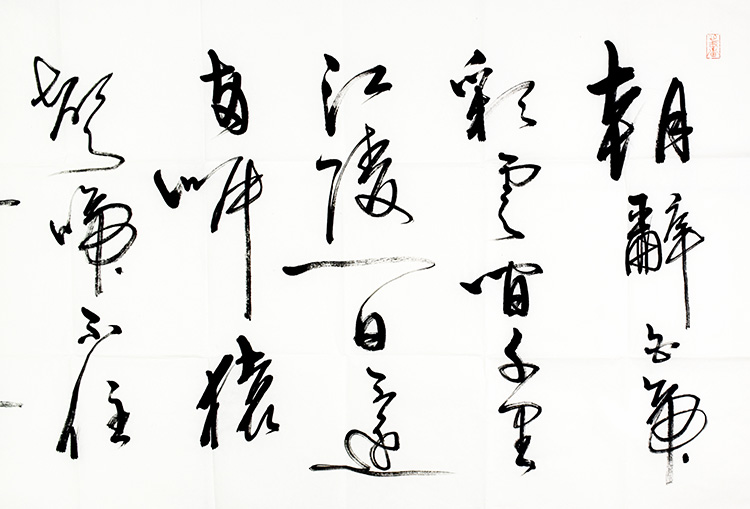 朝辭白帝
彩雲間千里
江陵一日還
兩岸猿
聲啼不住